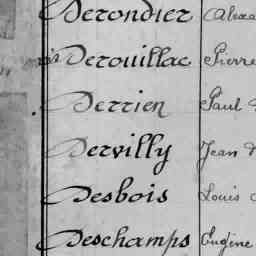 Derondier Alexa
Derouillac Pierre
Derrien Paul
Dervilly Jean
Desbois Louis
Deschamps Eugène